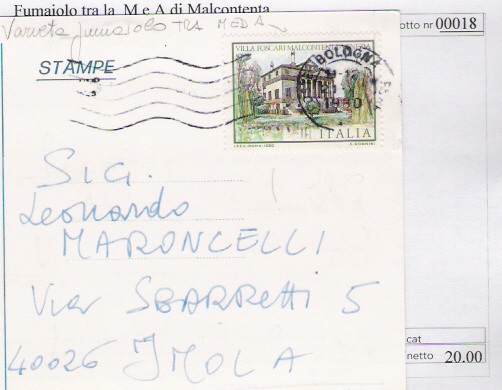 Fumaiolo tra la M e A di Malcontenta
otto nr 00018
Varietà fumaiolo TRA M ED A
STAMPE
VILLA FOSCARI MALCONTENTA
BOLOGNA
ITALIA
SIG.
Leonardo
MARONCELLI
Via SBARRetti 5
40026 IMOLA
cat
netto 20.00